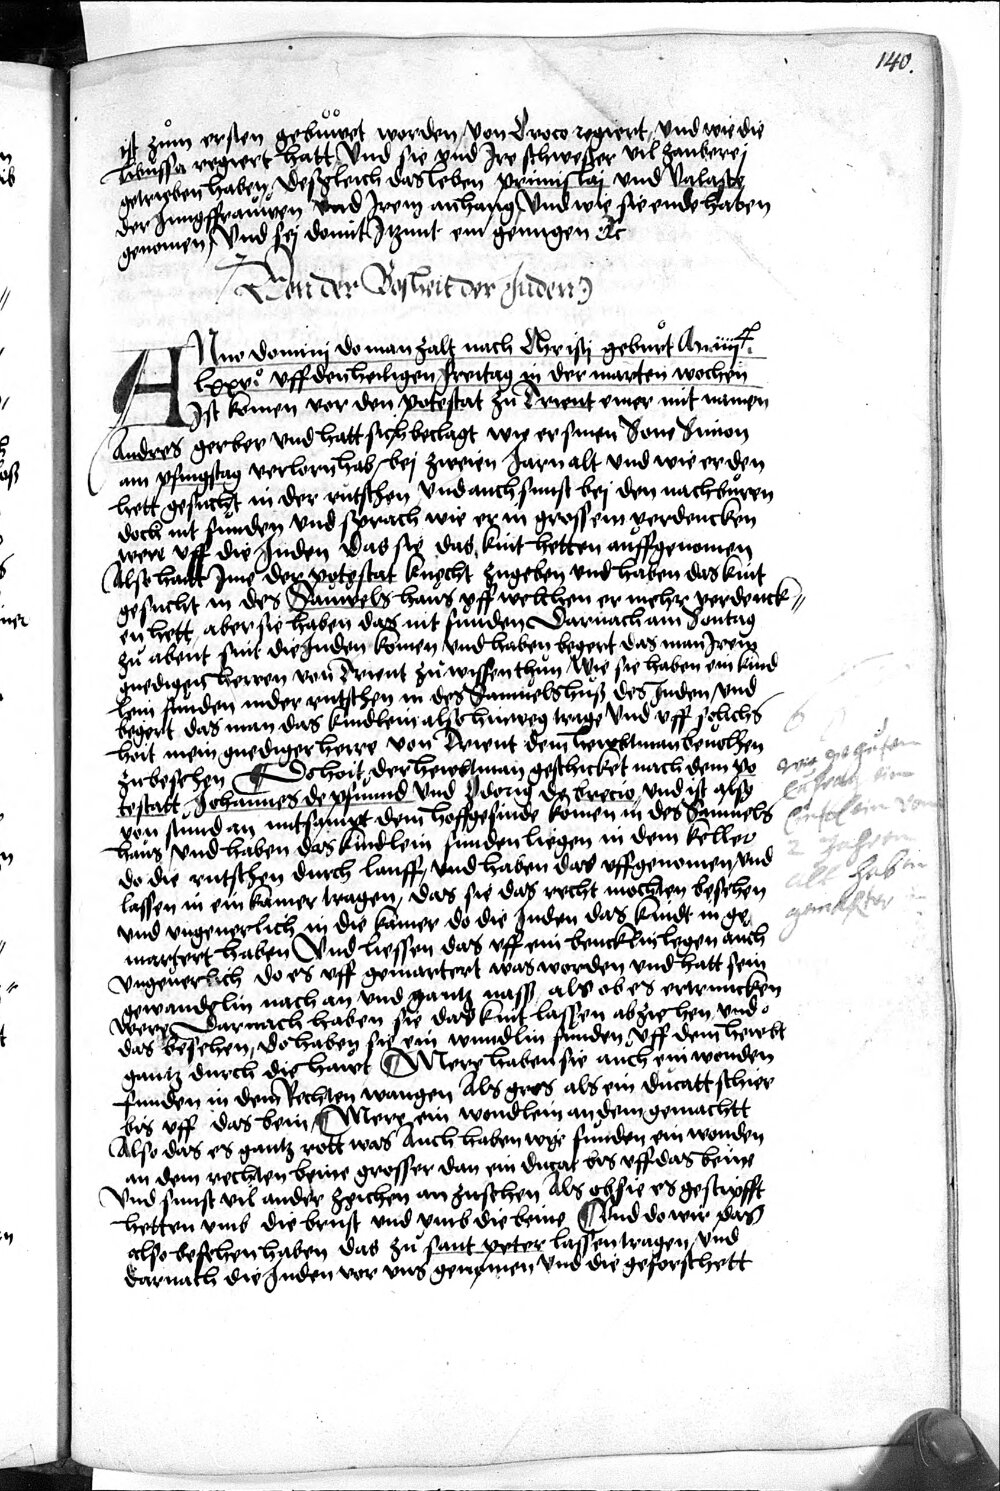 140.
ist zům ersten gebůwet worden von Croco regiert, Vnd wie die
Libussa regiert hatt Vnd sie vnd Ire schwester vil zauberej
getrieben haben, Deßgleich das leben primislaj vnd Valaste
der Jungffrauwen vnd Irem anhang Vnd wie sie ende haben
genomen, Vnd sej domit Itzunt ein genugen &c
Von der Bosheit der Juden
ANno domini do man zalt nach Christj geburt
lxxv° vff den heiligen freitag in der marter wochen
Ist komen vor den potestat zu Trient einer mit namen
Andres gerber vnd hatt sich beclagt wie er sinen Sone Simon
am pfingstag verlorn hab, bej zweien Jarn alt vnd wie er den
hett gesucht in der rutschen vnd auch sunst bej den nachburen
doch nit funden vnd sprach wie er in grossem verdencken
were vff die Juden das sie das kint hetten auffgenomen
Also hatt Ime der potestat knecht zugeben vnd haben das kint
gesucht in des Samuels haus vff welchen er mehr verdenck
en hett aber sie haben das nit funden Darnach am Sontag
zu abent sint die Juden komen vnd haben begert das man Irem
gnedigen herren von Trient zu wissen thun wie sie haben ein kind
lein funden in der rutschen in des Samuels huß des Juden, vnd
begert das man das kindlein also hinweg trage Vnd vff solichs
hoit mein gnediger herre von Trient dem hewbtman beuolhen
zu besehen Do hoit der hewbtman geschicket nach dem po
testatt Johannes de und de brecio, vnd ist also
von stund an mitsampt dem hoffgesinde komen in des Samuels
haus vnd haben das kindlein funden liegen in dem keller
do die rutschen durch lauff, vnd haben das vffgenomen, vnd
lassen in ein kamer tragen, das sie das recht mochten besehen
vnd vngeuerlich in die kamer do die Juden das kindt in ge
martert haben Vnd liessen das vff ein bencklin legen auch
vngeuerlich do es vff gemartert was worden vnd hatt sein
gewandelin nach an vnd gantz nass als ob es ertruncken
were Darnach haben sie das kint lassen abziehen, vnd
das besehen, do haben sie ein wundlin funden, vff dem hewbt
gantz durch die hawt Mere haben sie auch ein wonden
funden in dem Rechten wangen Als gros als ein ducatt schier
bis vff das bein, Mere ein wondlein an dem gemachtt
Also das es gantz rott was Auch haben wye funden ein wonden
an dem rechten beine grosser dan ein ducat bis vff das beine
Vnd sunst vil ander zeichen an zusehen Als ob sie es gestipfft
hetten vmb die brust vnd vmb die beine Vnd do wir das
also besehen haben das zu sant peter lassen tragen, vnd
darnach die Juden vor vns genomen vnd die geforschett
wie
Juden ein
kindlein von
2 Jahren
alt haben
gemartert